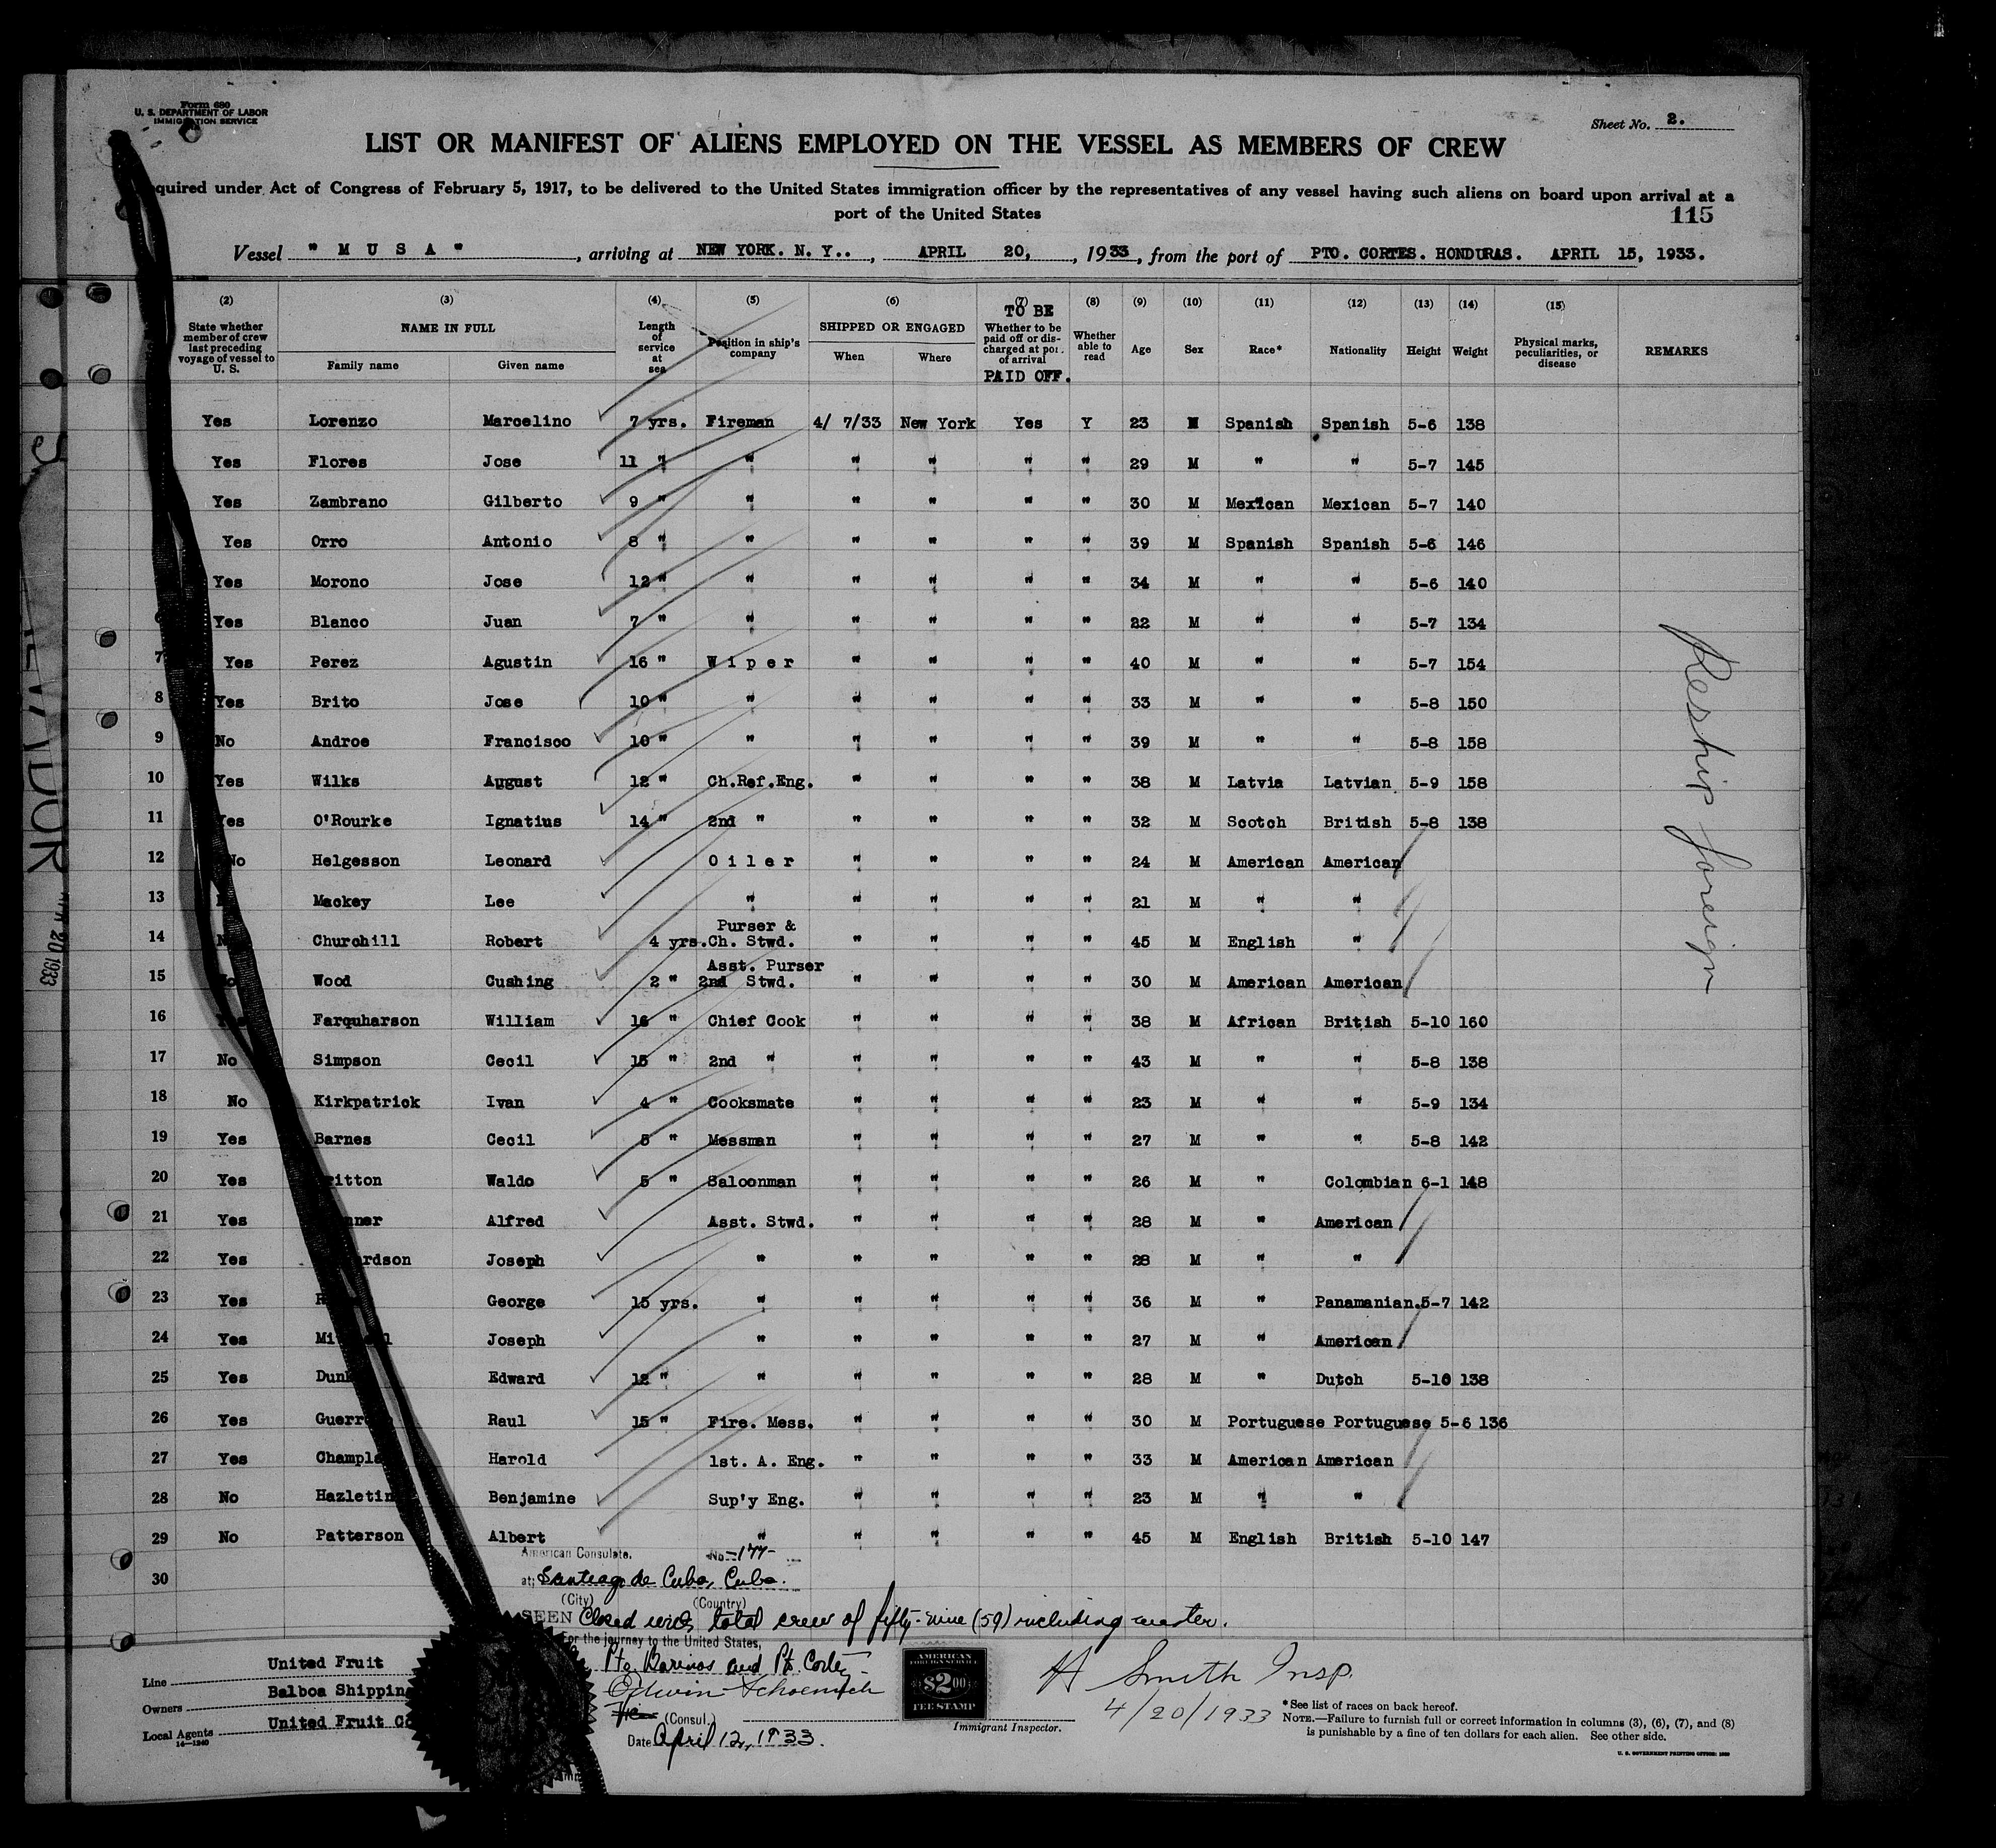 Form 680
U. S. DEPARTMENT OF LABOR
IMMIGRATION SERVICE
Sheet No. 2.
LIST OR MANIFEST OF ALIENS EMPLOYED ON THE VESSEL AS MEMBERS OF CREW
quired under Act of Congress of February 5, 1917, to be delivered to the United States immigration officer by the representatives of any vessel having such aliens on board upon arrival at a
port of the United States
115
Vessel " M U S A " , arriving at NEW YORK. N. Y.. , APRIL 20, , 1933, from the port of PTO. CORTES. HONDURAS. APRIL 15, 1933.
(2) (3) (4) (5) (6) (7) (8) (9) (10) (11) (12) (13) (14) (15)
State whether member of crew last preceding voyage of vessel to U. S. NAME IN FULL Family name Given name Length of service at sea Position in ship's company SHIPPED OR ENGAGED When Where TO BE Whether to be paid off or discharged at port of arrival PAID OFF. Whether able to read Age Sex Race* Nationality Height Weight Physical marks, peculiarities, or disease REMARKS
Yes Lorenzo Marcelino 7 yrs. Fireman 4/ 7/33 New York Yes Y 23 M Spanish Spanish 5-6 138
Yes Flores Jose 11 " " " " " " 29 M " " 5-7 145
Yes Zambrano Gilberto 9 " " " " " " 30 M Mexican Mexican 5-7 140
Yes Orro Antonio 8 " " " " " " 39 M Spanish Spanish 5-6 146
Yes Morono Jose 12 " " " " " " 34 M " " 5-6 140
6 Yes Blanco Juan 7 " " " " " " 22 M " " 5-7 134
7 Yes Perez Agustin 16 " W i p e r " " " " 40 M " " 5-7 154
8 Yes Brito Jose 10 " " " " " " 33 M " " 5-8 150
9 No Androe Francisco 10 " " " " " " 39 M " " 5-8 158
10 Yes Wilks August 12 " Ch.Ref.Eng. " " " " 38 M Latvia Latvian 5-9 158
11 Yes O'Rourke Ignatius 14 " 2nd " " " " " 32 M Scotch British 5-8 138
12 No Helgesson Leonard O i l e r " " " " 24 M American American
13 Mackey Lee " " " " " 21 M " "
14 Churchill Robert 4 yrs. Purser & Ch. Stwd. " " " " 45 M English "
15 No Wood Cushing 2 " Asst. Purser 2nd Stwd. " " " " 30 M American American
16 Yes Farquharson William 16 " Chief Cook " " " " 38 M African British 5-10 160
17 No Simpson Cecil 15 " 2nd " " " " " 43 M " " 5-8 138
18 No Kirkpatrick Ivan 4 " Cooksmate " " " " 23 M " " 5-9 134
19 Yes Barnes Cecil 5 " Messman " " " " 27 M " " 5-8 142
20 Yes itton Waldo 5 " Saloonman " " " " 26 M " Colombian 6-1 148
21 Yes nner Alfred Asst. Stwd. " " " " 28 M " American
22 Yes rdson Joseph " " " " " 28 M " "
23 Yes George 15 yrs. " " " " " 36 M " Panamanian. 5-7 142
24 Yes Mi l Joseph " " " " " 27 M " American
25 Yes Dun Edward 12 " " " " " " 28 M " Dutch 5-10 138
26 Yes Guerr Raul 15 " Fire. Mess. " " " " 30 M Portuguese Portuguese 5-6 136
27 Yes Champla Harold 1st. A. Eng. " " " " 33 M American American
28 No Hazletin Benjamine Sup'y Eng. " " " " 23 M " "
29 No Patterson Albert " " " " " 45 M English British 5-10 147
30
Reship foreign
American Consulate. No. 177
at: Santiago de Cuba, Cuba.
(City) (Country)
SEEN Closed with total crew of fifty-nine (59) including master.
For the journey to the United States,
Pto. Barrios and Pt. Cortez
Edwin Schoenrich
(Consul.)
Date April 12, 1933.
AMERICAN
FOREIGN SERVICE
$2.00
FEE STAMP
H Smith Insp.
4/20/1933
Immigrant Inspector.
Line United Fruit
Owners Balboa Shippin
Local Agents United Fruit Co
14—1240
*See list of races on back hereof.
NOTE.—Failure to furnish full or correct information in columns (3), (6), (7), and (8)
is punishable by a fine of ten dollars for each alien. See other side.
U. S. GOVERNMENT PRINTING OFFICE: 1930